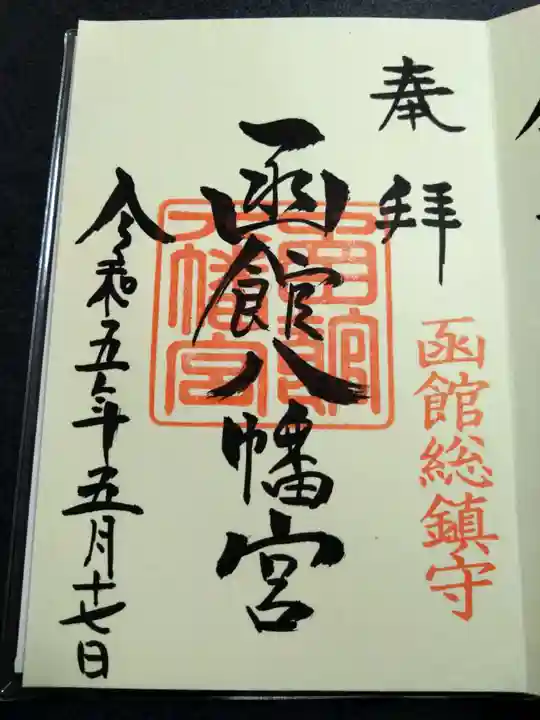 奉拝
函館総鎮守
函館八幡宮
函館八幡宮
令和五年五月十七日